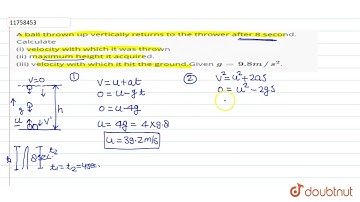 11758453
A ball thrown up vertically returns to the thrower after 8 second.
Calculate
(i) velocity with which it was thrown
(ii) maximum height it acquired.
(iii) velocity with which it hit the ground.Given g = 9.8m/s².
V=0
h
g
u
V'
8sec
t₂
t₁
t₁=t₂=4sec.
①
V = u+at
0 = u-gt
0 = u-4g
u = 4g = 4×9.8
u = 39.2m/s
②
V²=u²+2as
0 = u²-2gs
doubtnut